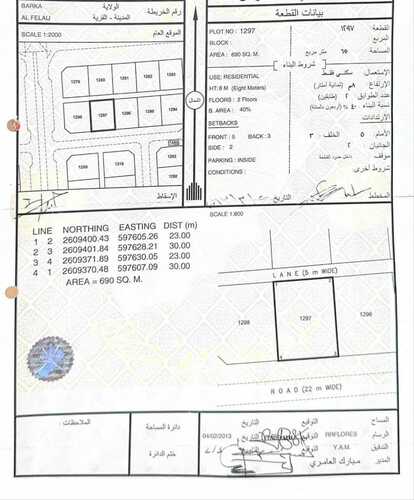 BARKA
الولاية
رقم الخريطة
AL FELAIJ
المدينة - القرية
SCALE 1:2000
الموقع العام
1279 1280 1281 1282
1296 1297 1298 1299
الشمال
الإسقاط
بيانات القطعة
PLOT NO : 1297
القطعة ١٢٩٧
BLOCK :
المربع
AREA : 690 SQ. M.
المساحة ٦٩٠ متر مربع
شروط البناء
USE: RESIDENTIAL
الإستعمال سكني فقط
HT: 8 M (Eight Meters)
الإرتفاع
FLOORS : 2 Floors
عدد الطوابق ٢ (طابقين)
B. AREA : 40%
نسبة البناء ٤٠ %
SETBACKS
الإرتدادات
FRONT : 5 BACK : 3
الأمام ٥ الخلف ٣
SIDE : 2
الجانبان ٢
PARKING : INSIDE
موقف داخل حدود القطعة
CONDITIONS :
شروط أخرى
المخطط
التاريخ
SCALE 1:800
LINE NORTHING EASTING DIST (m)
1 2 2609400.43 597605.26 23.00
2 3 2609401.84 597628.21 30.00
3 4 2609371.89 597630.05 23.00
4 1 2609370.48 597607.09 30.00
AREA = 690 SQ. M.
LANE (5 m WIDE)
1298 1297 1296
ROAD (22 m WIDE)
الملاحظات:
دائرة المساحة
ختم الدائرة
المساح التوقيع التاريخ
الرسام RRFLORES التوقيع التاريخ 04/02/2013
التدقيق Y.A.M. التوقيع التاريخ
المدير مبارك العامري